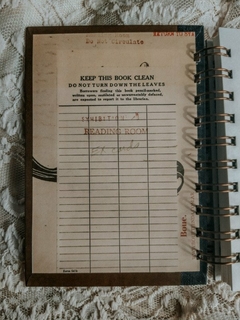 Do Not Circulate
RETURN TO
KEEP THIS BOOK CLEAN
DO NOT TURN DOWN THE LEAVES
Borrowers finding this book pencil-marked,
written upon, mutilated or unwarrantably defaced,
are expected to report it to the librarian.
EXHIBITION
READING ROOM